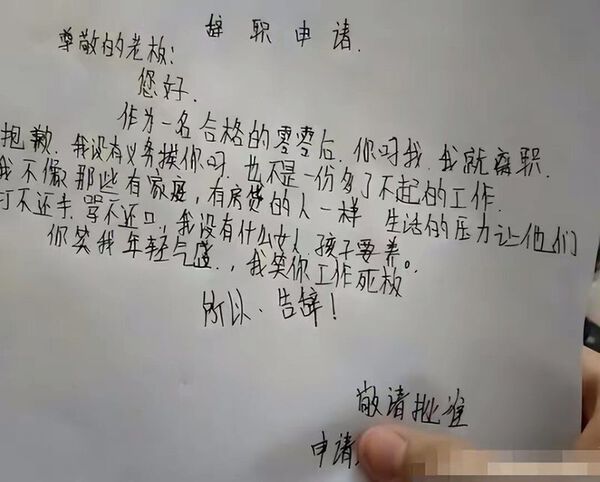 辞职申请.
尊敬的老板:
您好.
作为一名合格的零零后.你呵我.我就离职.
抱歉.我没有义务挨你呵.也不是一份多了不起的工作.
我不像那些有家庭,有房贷的人一样 生活的压力让他们
打不还手.骂不还口.我没有什么女人.孩子要养。
你笑我年轻气盛.,我笑你工作死板
所以.告辞!
敬请批准
申请